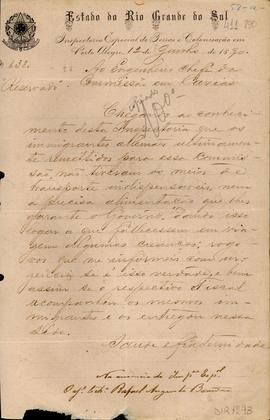 Estado do Rio Grande do Sul
Inspectoria Especial de Terras e Colonisação em
Porto Alegre, 12 de Junho de 1890.
Ao Engenheiro Chefe da
"Reservado" Commissão em
Chegou ao conheci-
mento desta Inspectoria que os
immigrantes allemães ultimamen-
te remettidos para essa Commis-
são, não tiveram os meios de
transporte indispensaveis, nem
a precisa alimentação que lhes
garante o Governo, dando isso
logar a que fallecessem em via-
gem algumas creanças; rogo
vos que me informeis com ur-
gencia se é isso verdade, e bem
assim se o respectivo Fiscal
acompanhou os mesmos im-
migrantes e os entregou nessa
séde.
Saude e fraternidade
Na ausencia do Insp.or Esp.al
Rafael Augusto